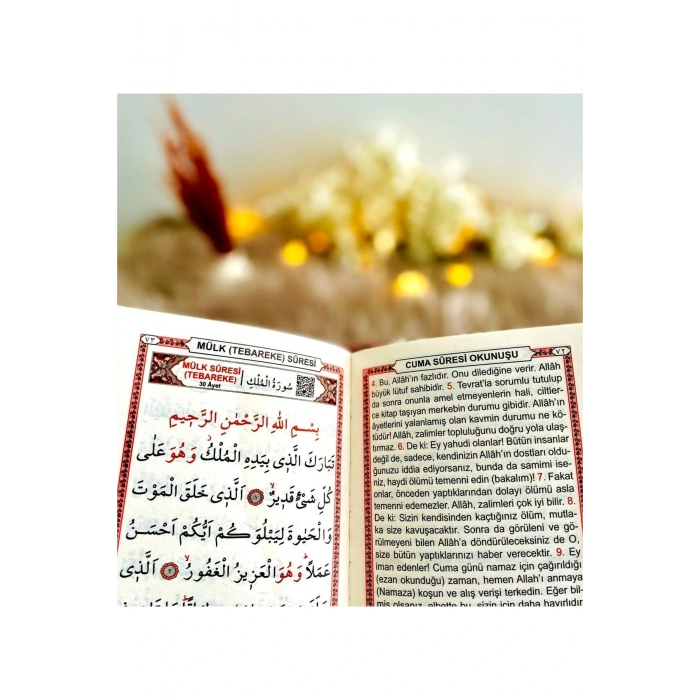 ٧٣
MÜLK (TEBAREKE) SÛRESİ
MÜLK SÛRESİ
(TEBAREKE)
30 Âyet
سُورَةُ الْمُلْكِ
بِسْمِ اللّٰهِ الرَّحْمٰنِ الرَّح۪يمِ
تَبَارَكَ الَّذ۪ي بِيَدِهِ الْمُلْكُۘ وَهُوَ عَلٰى
كُلِّ شَيْءٍ قَد۪يرٌۙ ﴿١﴾ اَلَّذ۪ي خَلَقَ الْمَوْتَ
وَالْحَيٰوةَ لِيَبْلُوَكُمْ اَيُّكُمْ اَحْسَنُ
عَمَلًاۜ وَهُوَ الْعَز۪يزُ الْغَفُورُۙ ﴿٢﴾ اَلَّذ۪ي
CUMA SÛRESİ OKUNUŞU
٧٢
4. Bu, Allâh'ın fazlıdır. Onu dilediğine verir. Allâh
büyük lütuf sahibidir. 5. Tevrat'la sorumlu tutulup
da sonra onunla amel etmeyenlerin hali, ciltler-
ce kitap taşıyan merkebin durumu gibidir. Allâh'ın
âyetlerini yalanlamış olan kavmin durumu ne kö-
tüdür! Allâh, zalimler topluluğunu doğru yola ulaş-
tırmaz. 6. De ki: Ey yahudi olanlar! Bütün insanlar
değil de, sadece, kendinizin Allâh'ın dostları oldu-
ğunuzu iddia ediyorsanız, bunda da samimi ise-
niz, haydi ölümü temenni edin (bakalım)! 7. Fakat
onlar, önceden yaptıklarından dolayı ölümü asla
temenni edemezler. Allâh, zalimleri çok iyi bilir. 8.
De ki: Sizin kendisinden kaçtığınız ölüm, mutla-
ka size kavuşacaktır. Sonra da görüleni ve gö-
rülmeyeni bilen Allâh'a döndürüleceksiniz de O,
size bütün yaptıklarınızı haber verecektir. 9. Ey
iman edenler! Cuma günü namaz için çağırıldığı
(ezan okunduğu) zaman, hemen Allah'ı anmaya
(Namaza) koşun ve alış verişi terkedin. Eğer bil-
miş olsanız, elbette bu, sizin için daha hayırlıdır